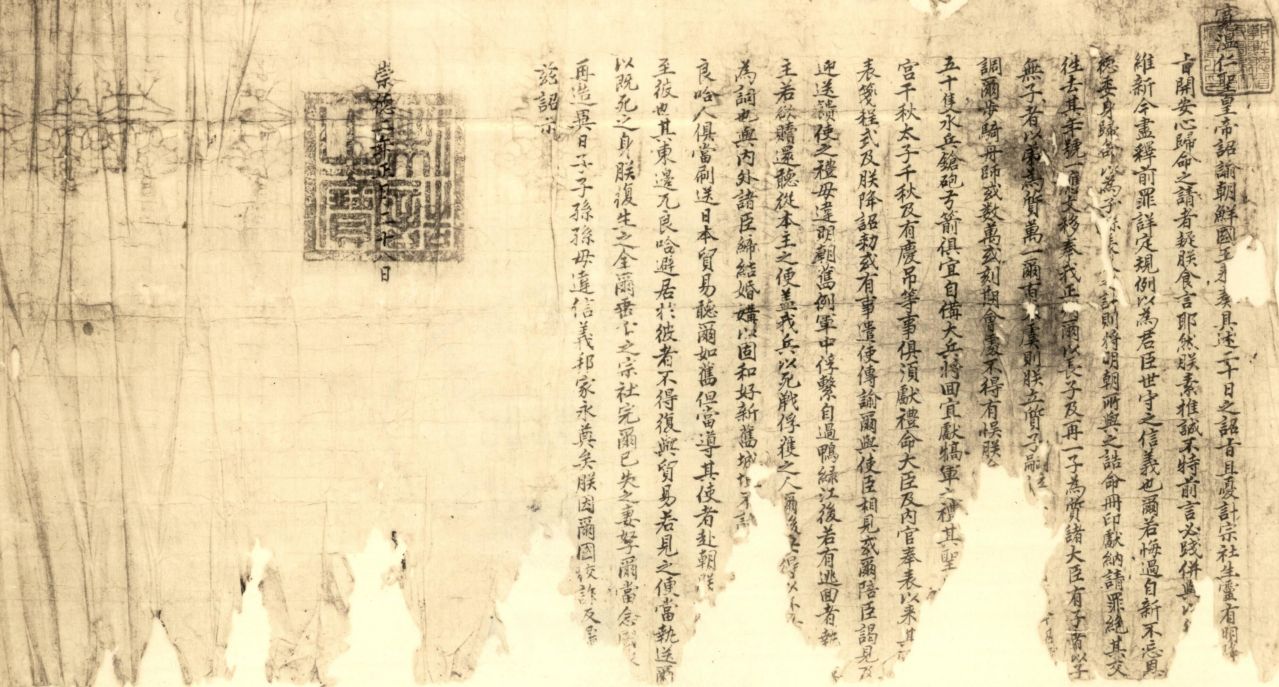 寬溫仁聖皇帝詔諭朝鮮國王來奏具述二十日之詔旨且憂計宗社生靈有明降
旨開安心歸命之請者疑朕食言耶然朕素推誠不特前言必踐併與以
維新今盡釋前罪詳定規例以為君臣世守之信義也爾若悔過自新不忘恩
德委身歸命以為子孫長久之計則將明朝所與之誥命冊印獻納請罪絕其交
往去其年號一應文移奉我正朔爾以長子及再一子為質諸大臣有子者以子
無子者以弟為質萬一爾有不虞則朕立質子嗣位
調爾步騎舟師或數萬或刻期會處不得有悞朕
五十隻水兵鎗砲弓箭俱宜自備大兵將回宜獻犒軍之禮其聖
宮千秋太子千秋及有慶吊等事俱須獻禮命大臣及內官奉表以來其
表箋程式及朕降詔勅或有事遣使傳諭爾與使臣相見或爾陪臣謁見及
迎送饋使之禮毋違明朝舊例軍中俘繫自過鴨綠江後若有逃回者執
主若欲贖還聽從本主之便盖我兵以死戰俘獲之人爾後毋得以不
為詞也與內外諸臣締結婚媾以固和好新舊城垣不許
良哈人俱當刷送日本貿易聽爾如舊但當導其使者赴朝朕
至彼也其東邊兀良哈避居於彼者不得復與貿易若見之便當執送爾
以既死之身朕復生之全爾垂亡之宗社完爾已失之妻孥爾當念國家
再造異日子子孫孫毋違信義邦家永奠矣朕因爾國狡詐反覆
玆詔示
崇德二年正月二十八日